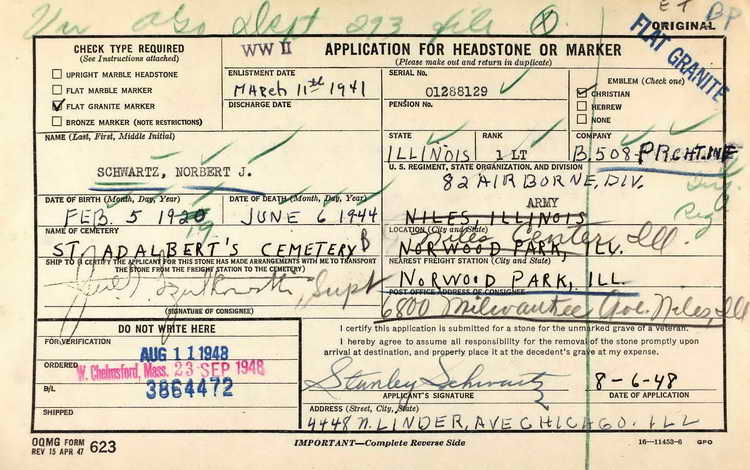 Dept 293 file X
ET BP
ORIGINAL
FLAT GRANITE
CHECK TYPE REQUIRED
(See Instructions attached)
UPRIGHT MARBLE HEADSTONE
FLAT MARBLE MARKER
FLAT GRANITE MARKER
BRONZE MARKER (NOTE RESTRICTIONS)
WW II
APPLICATION FOR HEADSTONE OR MARKER
(Please make out and return in duplicate)
ENLISTMENT DATE
MARCH 11th 1941
DISCHARGE DATE
SERIAL No.
01288129
PENSION No.
EMBLEM (Check one)
CHRISTIAN
HEBREW
NONE
NAME (Last, First, Middle Initial)
SCHWARTZ, NORBERT J.
STATE
ILLINOIS
RANK
1 LT
COMPANY
B. 508 PRCHT. INF
U. S. REGIMENT, STATE ORGANIZATION, AND DIVISION
82 AIR BORNE, DIV.
ARMY
DATE OF BIRTH (Month, Day, Year)
FEB. 5 1920
19
DATE OF DEATH (Month, Day, Year)
JUNE 6 1944
NAME OF CEMETERY
ST. ADALBERT'S CEMETERY
NILES, ILLINOIS
LOCATION (City and State)
Niles Center, Ill.
NORWOOD PARK, ILL.
SHIP TO (I CERTIFY THE APPLICANT FOR THIS STONE HAS MADE ARRANGEMENTS WITH ME TO TRANSPORT THE STONE FROM THE FREIGHT STATION TO THE CEMETERY)
Supt
(SIGNATURE OF CONSIGNEE)
NEAREST FREIGHT STATION (City and State)
NORWOOD PARK, ILL.
POST OFFICE ADDRESS OF CONSIGNEE
6800 Milwaukee Ave. Niles, Ill
DO NOT WRITE HERE
FOR VERIFICATION
AUG 11 1948
ORDERED
W. Chelmsford, Mass. 23 SEP 1948
B/L
3864472
SHIPPED
I certify this application is submitted for a stone for the unmarked grave of a veteran.
I hereby agree to assume all responsibility for the removal of the stone promptly upon
arrival at destination, and properly place it at the decedent's grave at my expense.
Stanley Schwartz
8-6-48
APPLICANT'S SIGNATURE
DATE OF APPLICATION
ADDRESS (Street, City, State)
4448 N. LINDER, AVE CHICAGO. ILL
OQMG FORM
REV 15 APR 47
623
IMPORTANT—Complete Reverse Side
16—11453-6 GPO